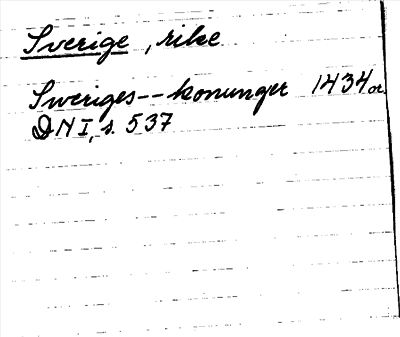 Sverige, rike
Sweriges -- konunger 1434 or
DN I, s. 537